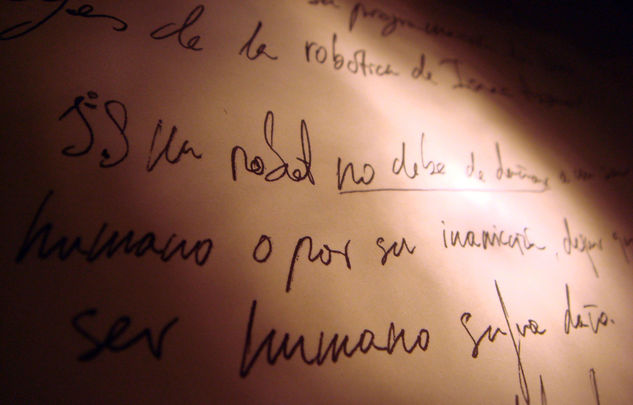 su programación
yes de la robótica de Isaac Asimov
1ª) Un robot no debe de dañar a un ser
humano o por su inanición, dejar q
ser humano sufra daño.